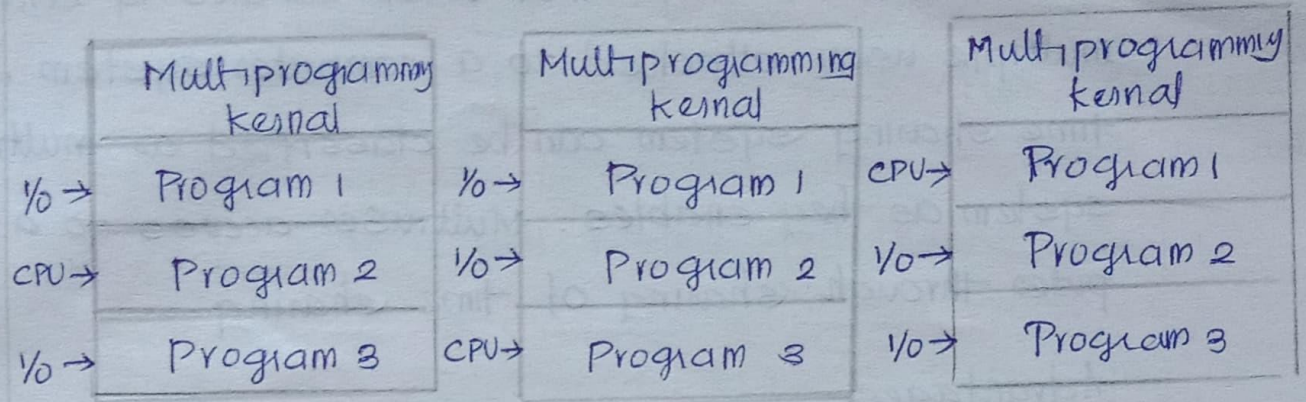 Multiprogrammy
kernal
I/O → Program 1
CPU → Program 2
I/O → Program 3
Multiprogramming
kernal
I/O → Program 1
I/O → Program 2
CPU → Program 3
Multiprogrammiy
kernal
CPU → Program 1
I/O → Program 2
I/O → Program 3